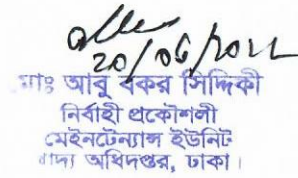 20/06/2022
মোঃ আবু বকর সিদ্দিকী
নির্বাহী প্রকৌশলী
মেইনটেন্যান্স ইউনিট
খাদ্য অধিদপ্তর, ঢাকা।